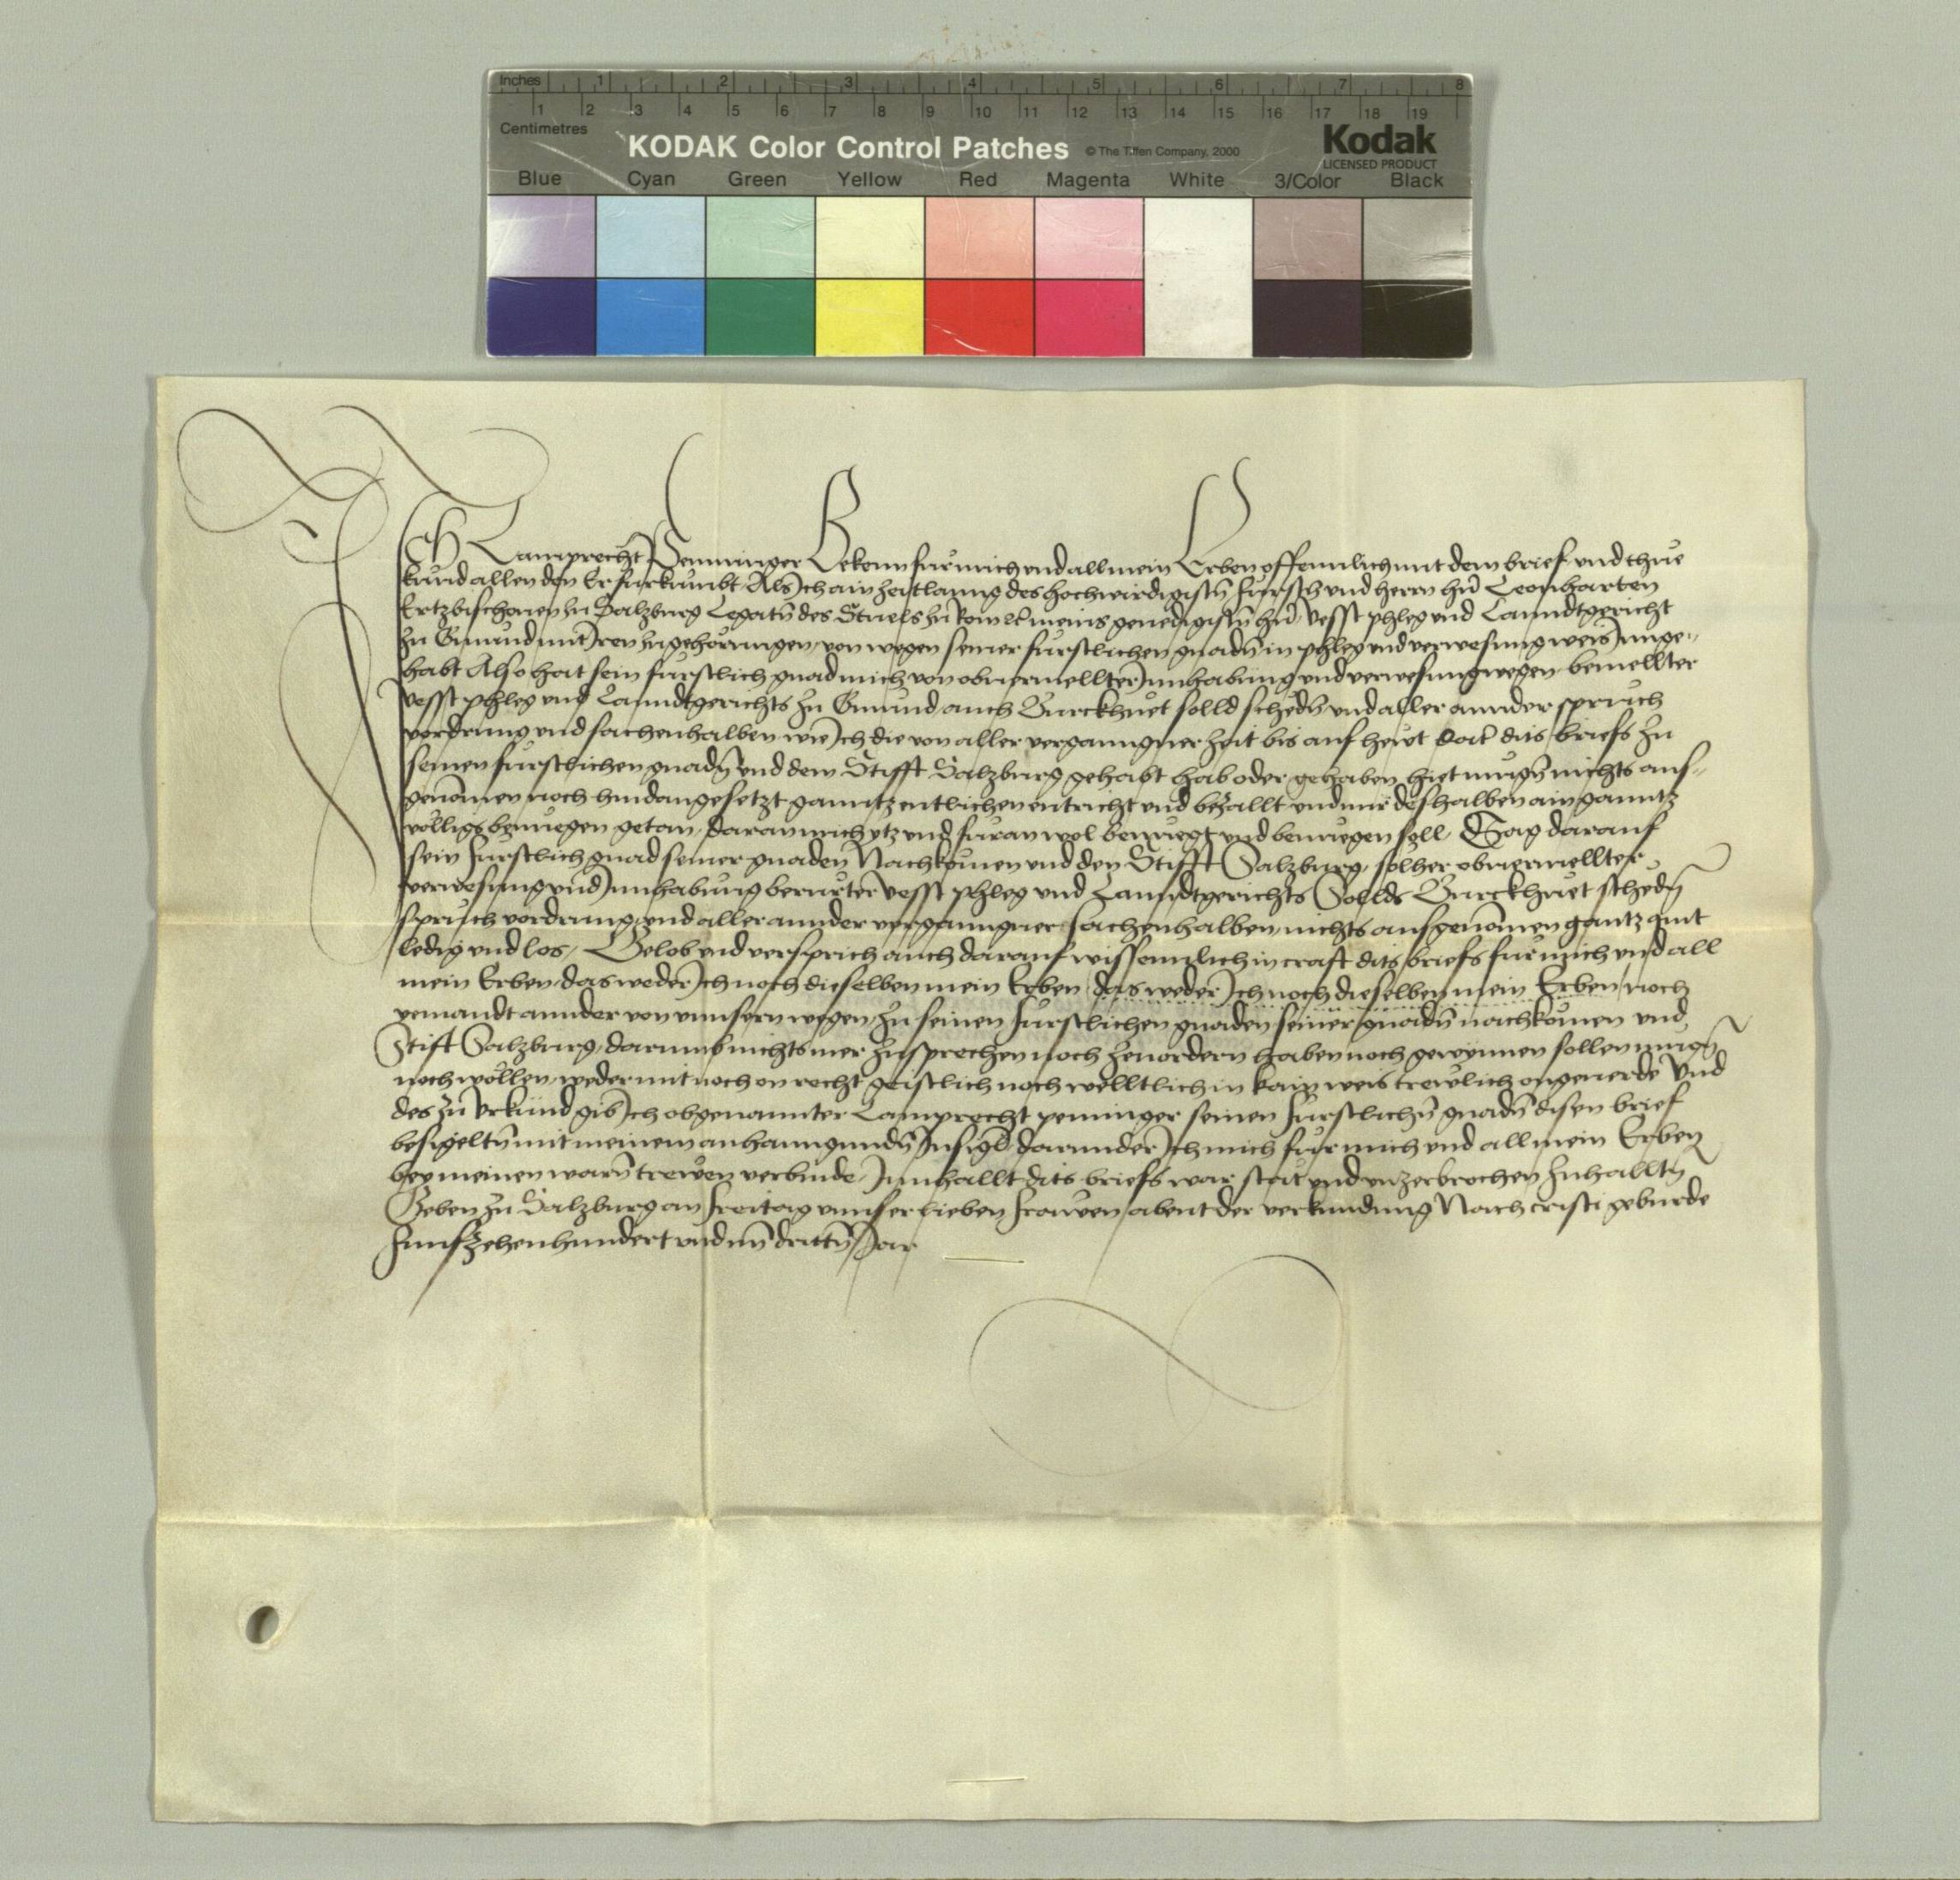 Inches 1 2 3 4 5 6 7 8
1 2 3 4 5 6 7 8 9 10 11 12 13 14 15 16 17 18 19
Centimetres
KODAK Color Control Patches © The Tiffen Company, 2000 Kodak
LICENSED PRODUCT
Blue Cyan Green Yellow Red Magenta White 3/Color Black
Ich Lamprecht Penninger Bekenn fur mich und all mein Erben offennlich mit dem brief und thue
kund allen den Er furkumbt Als Ich ain zeitlanng des hochwirdigistn fursten und herrn hrn Leonharten
Ertzbischouen zu Salzburg Legatn des Stuels zu Rom meins genedigistn hrn Vesst phleg und Lanndtgericht
zu Gmund mit Iren zugehorungen von wegen seiner furstlichen gnadn in phleg und verwesung weis Innge-
habt Also hat sein furstlich gnad mich von obuermellter Innhabung und verwesung wegen bemellter
Vesst phleg und Lanndtgerichts zu Gmund auch Burckhuet solld schedn und aller annder spruch
vordrung und sachenhalben wie Ich die von aller verganngner zeit bis auf hewt dat dits briefs zu
seinen furstlichen gnadn und dem Stifft Salzburg gehabt hab oder gehaben hiet mugn nichts aus-
genomen noch hindangesetzt ganntz entlichen entricht und bezallt und mir deshalben ain ganntz
volligs benuegen getan daran mich ytz und furan wol benuegt und benuegen soll Sag darauf
sein furstlich gnad seiner gnaden Nachkomen und den Stifft Salzburg solher obuermellter
verwesung und Innhabung berurter Vesst phleg und Lanndtgerichts Sollds Burckhuet schedn
spruch vordrung und aller annder verganngner sachenhalben nichts ausgenomen gantz quit
ledig und los Gelob und versprich auch darauf wissenntlich in craft dits briefs fur mich und all
mein Erben das weder Ich noch dieselben mein Erben das weder Ich noch dieselben mein Erben noch
yemandt annder von unnsern wegen zu seinen furstlichen gnaden seiner gnadn nachkomen und
Stift Salzburg darumb nichts mer zusprechen noch zeuordern haben noch gewynnen sollen mugn
noch wollen weder mit noch on recht geistlich noch welltlich in kain weis trewlich ongeuerde Und
des zu Urkund gib Ich obgenannter Lamprecht penninger seinen furstlichn gnadn disen brief
besigeltn mit meinem anhanngundn Insigl darunder Ich mich fur mich und all mein Erben
bey meinen warn trewen verbinde Innhallt dits briefs war stat und unzerbrochen zuhalltn
Geben zu Salzburg an freitag unnser lieben frawen abent der verkundung Nach cristi geburde
funfzehenhundert und im drittn Jar